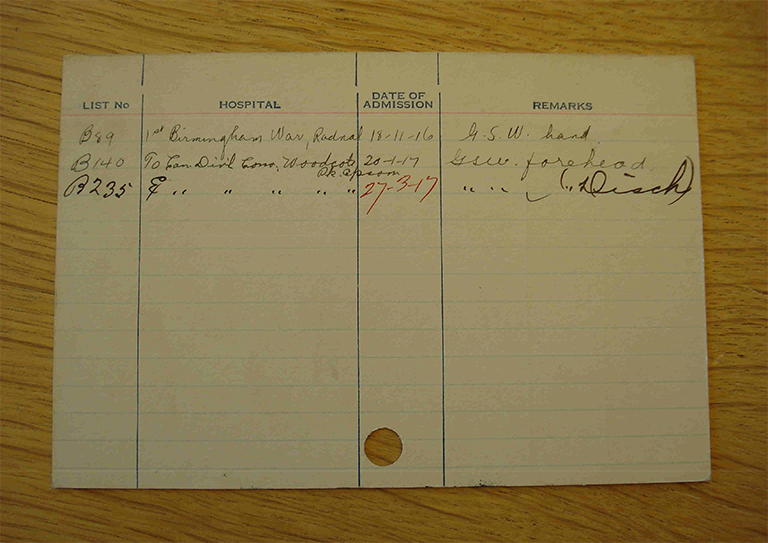 LIST No HOSPITAL DATE OF ADMISSION REMARKS
B89 1st Birmingham War, Rudnal 18-11-16 G.S.W. hand.
B140 To Can Div'l Conv. Woodcote 20-1-17 GSW. forehead
Pk. Epsom
B235 " " " " " 27-3-17 " " (" Disch)